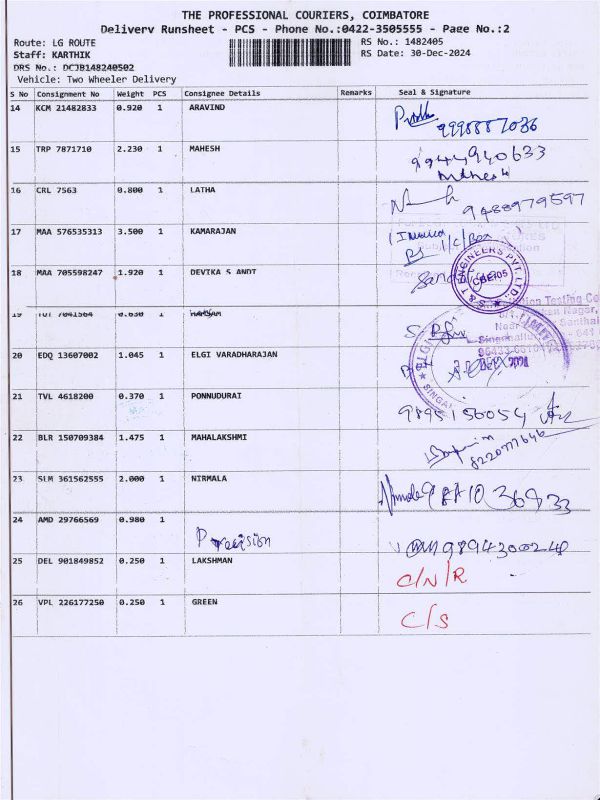 THE PROFESSIONAL COURIERS, COIMBATORE
Delivery Runsheet - PCS - Phone No.:0422-3505555 - Page No.:2
Route: LG ROUTE
RS No.: 1482405
Staff: KARTHIK
RS Date: 30-Dec-2024
DRS No.: DCJB148240502
Vehicle: Two Wheeler Delivery
S No Consignment No Weight PCS Consignee Details Remarks Seal & Signature
14 KCM 21482833 0.920 1 ARAVIND
9998887036
15 TRP 7871710 2.230 1 MAHESH 9944940633
Mahesh
16 CRL 7563 0.800 1 LATHA 9488979597
17 MAA 576535313 3.500 1 KAMARAJAN
18 MAA 705598247 1.920 1 DEVIKA S ANDT
S & T ENGINEERS PVT. LTD. CBE/05
19 TUT 7041564 0.630 1
20 EDQ 13607002 1.045 1 ELGI VARADHARAJAN
21 TVL 4618200 0.370 1 PONNUDURAI 9895156054
22 BLR 150709384 1.475 1 MAHALAKSHMI
8220777646
23 SLM 361562555 2.000 1 NIRMALA
24 AMD 29766569 0.980 1 Precision 9894300240
25 DEL 901849852 0.250 1 LAKSHMAN C/N/R
26 VPL 226177250 0.250 1 GREEN C/S